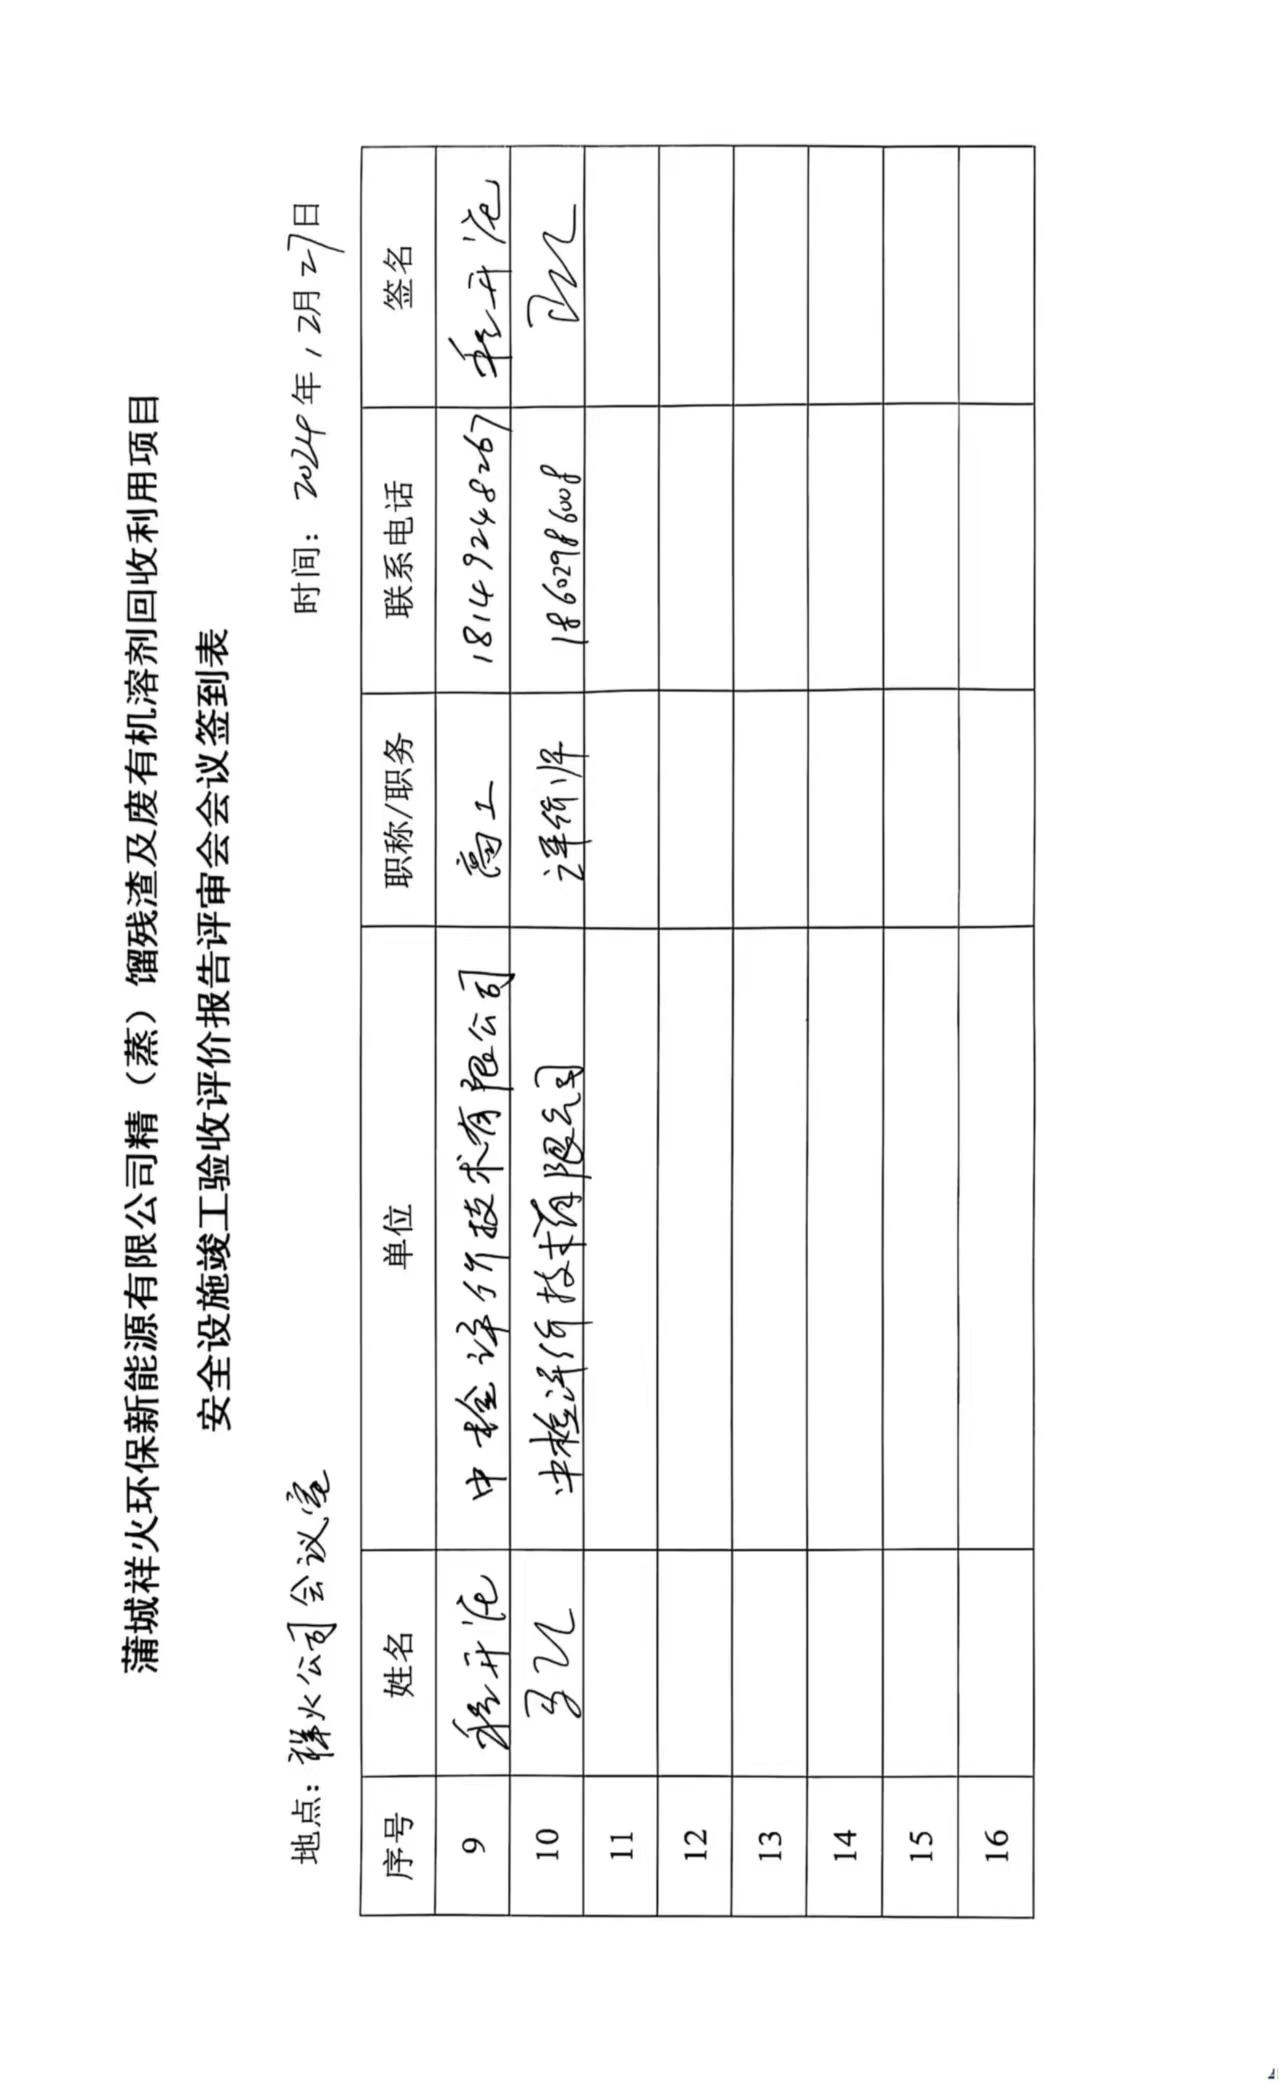 蒲城祥火环保新能源有限公司精（蒸）馏残渣及废有机溶剂回收利用项目
安全设施竣工验收评价报告评审会会议签到表
地点：祥火公司会议室 时间：2024年2月27日
序号 姓名 单位 职称/职务 联系电话 签名
9 程开 中检评价技术有限公司 高工 18149248267 程开
10 马 中检评价技术有限公司 评价师 18602986008
11
12
13
14
15
16